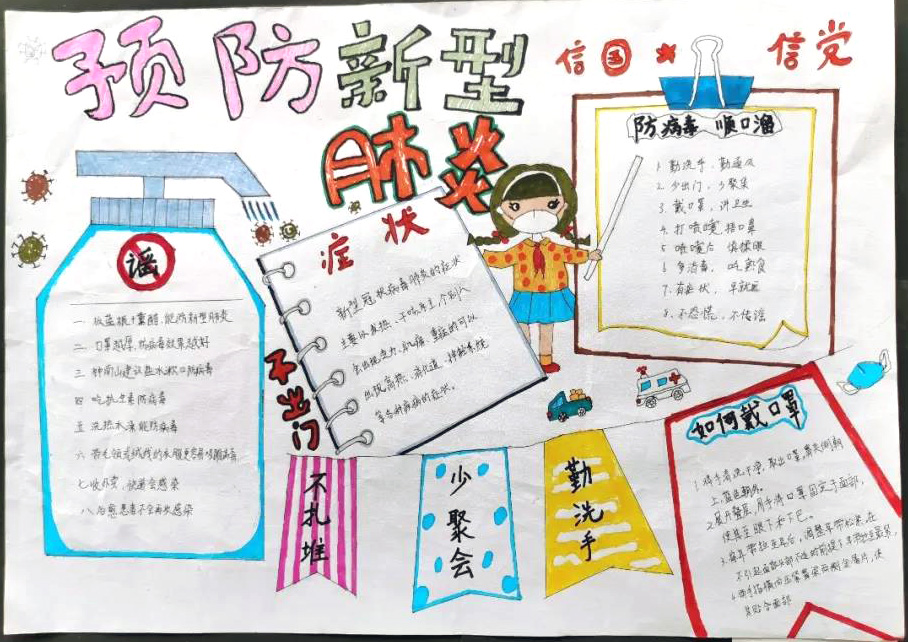 预防新型
肺炎
信国
信党
防病毒 顺口溜
1. 勤洗手、勤通风
2. 少出门、少聚集
3. 戴口罩、讲卫生
4. 打喷嚏、捂口鼻
5. 喷嚏后 慎揉眼
6. 多消毒、吃熟食
7. 有症状、早就医
8. 不恐慌、不传谣
谣
一 板蓝根+熏醋，能防新型肺炎
二 口罩越厚，防病毒效果越好
三 钟南山建议盐水漱口防病毒
四 吃 防病毒
五 洗热水澡能防病毒
六 带毛领或绒线的衣服更容易吸附病毒
七 收外卖，快递会感染
八 治愈患者不会再次感染
症状
新型冠状病毒肺炎的症状
主要以发热、干咳为主，个别人
会出现乏力、 ，重症的可以
出现高热、 消化道、神经系统
等各种疾病的症状。
不出门
不扎堆
少聚会
勤洗手
如何戴口罩
1. 将手清洗干净，取出口罩， 朝
上，蓝色朝外。
2. 展开叠层，用手将口罩固定于面部，
使其至眼下和下巴。
3. 每耳带 后，调整耳带松紧，在
不引起面部 不适的前提下
4. 两手指横向 鼻梁两侧金属片，使
其贴合面部